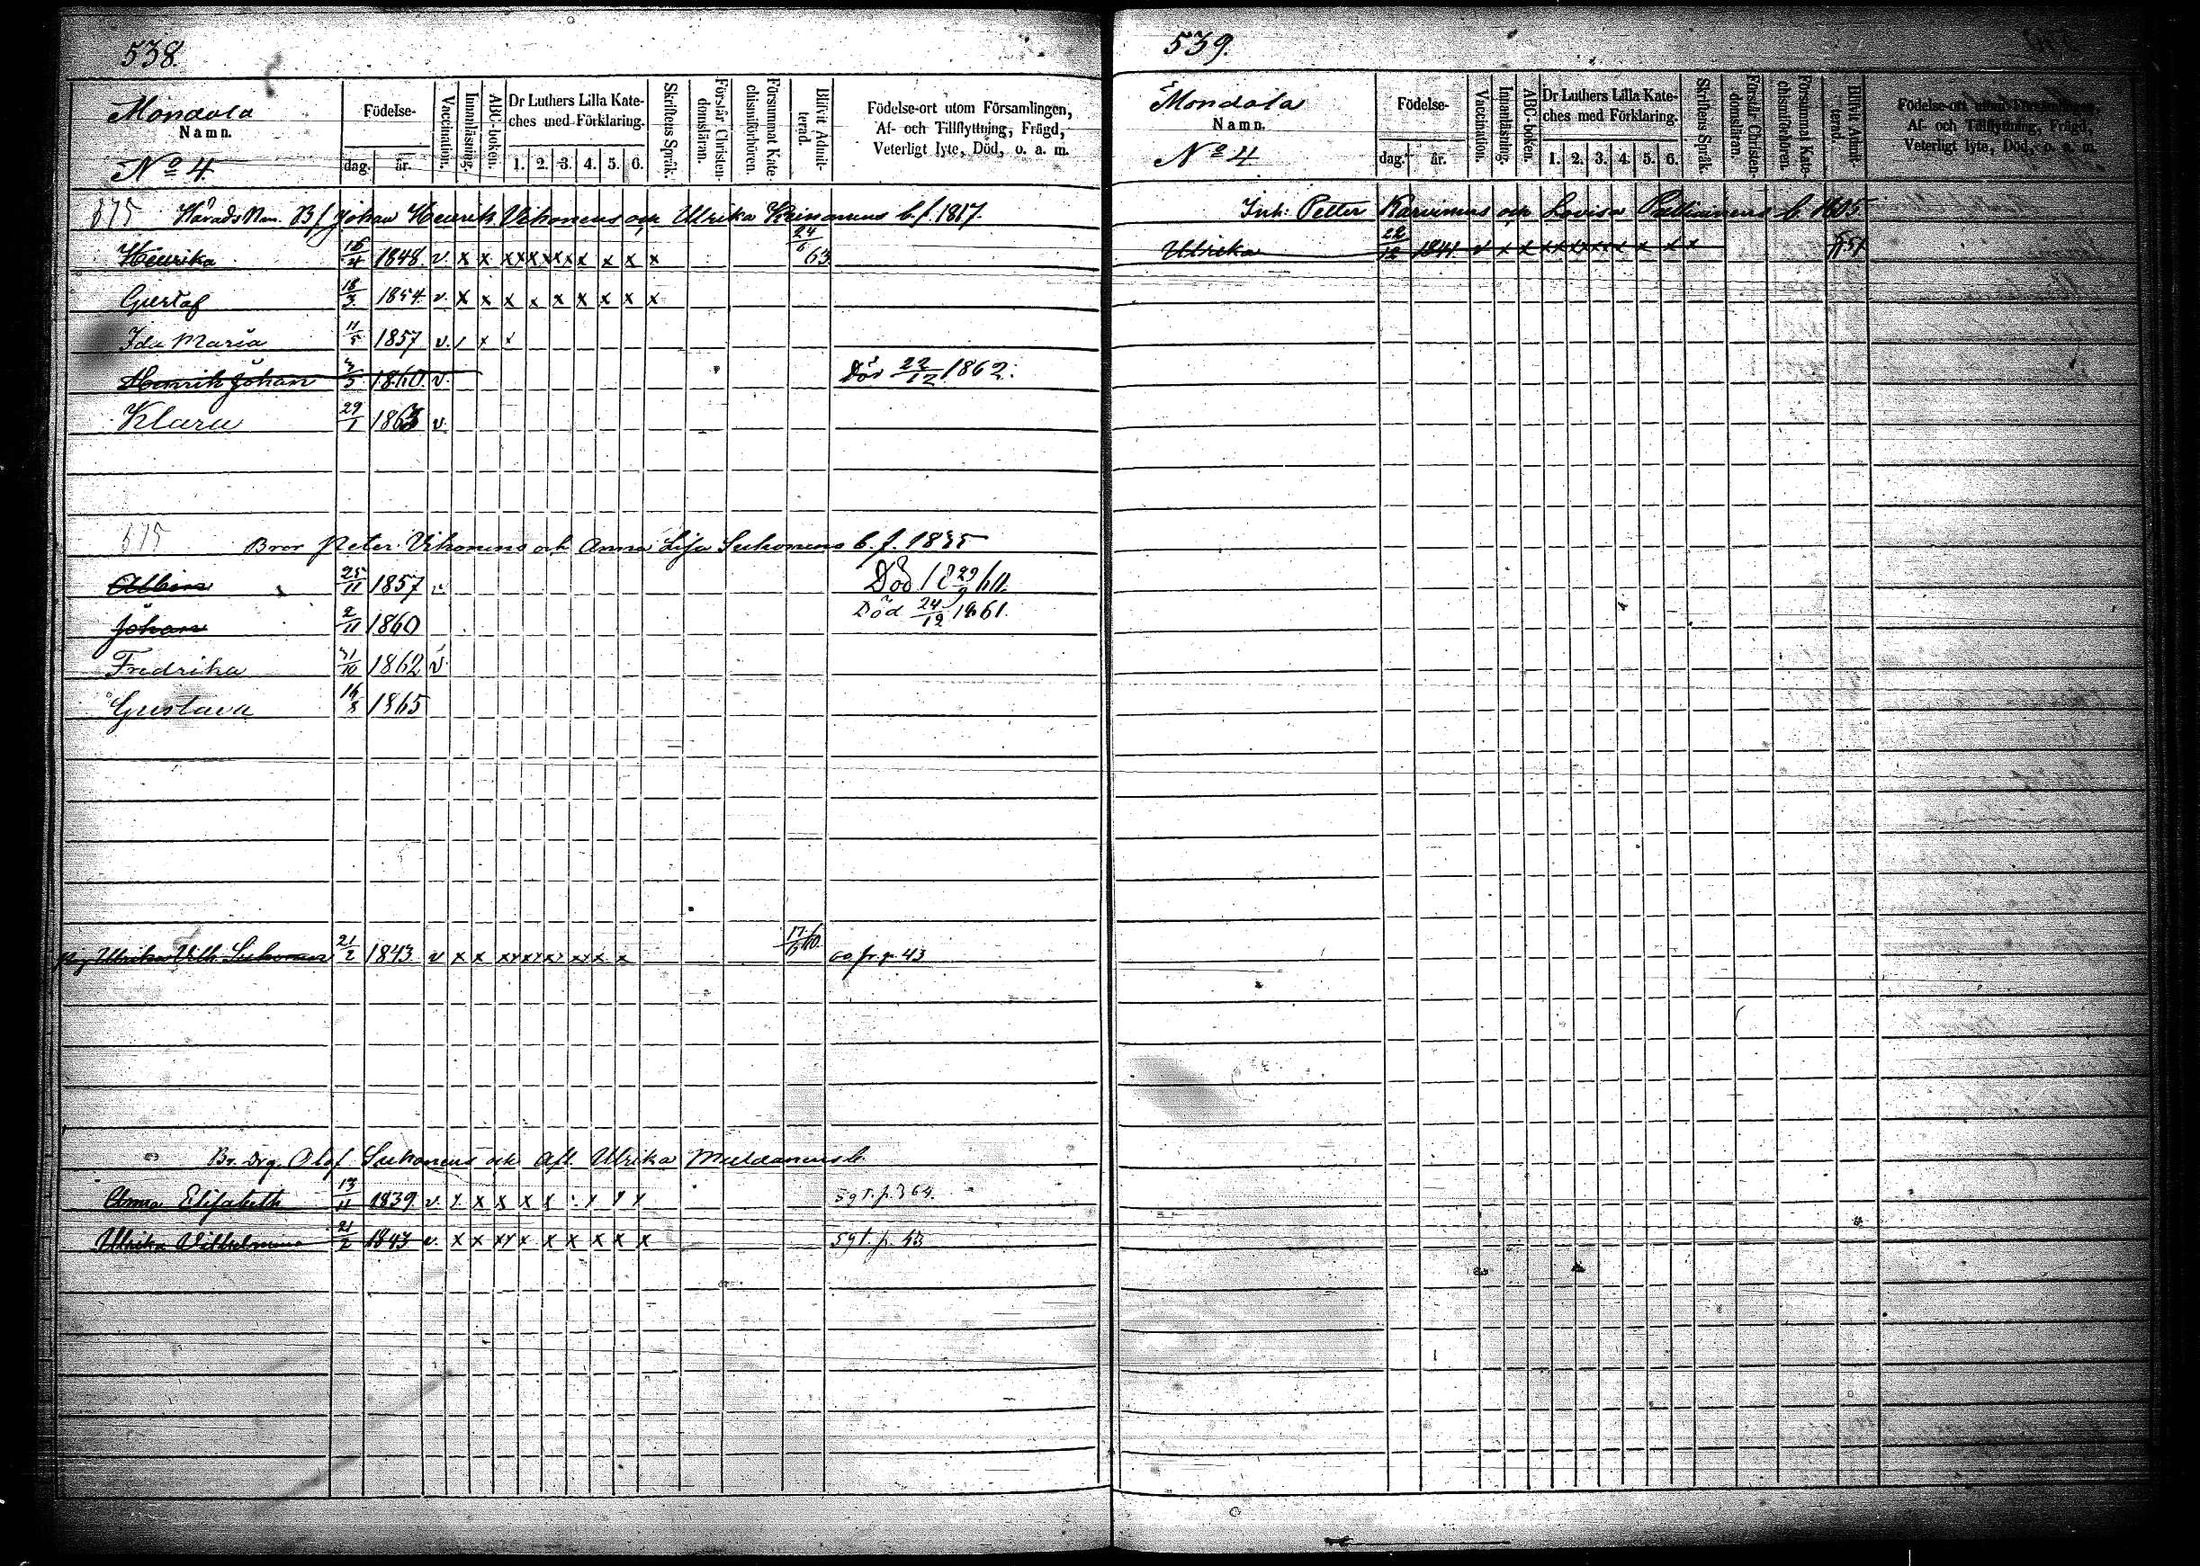 538.
Mondola
Namn.
No 4
Födelse-
dag. år.
Vaccination.
Innanläsning.
ABC-boken.
Dr Luthers Lilla Kate-
ches med Förklaring.
1. 2. 3. 4. 5. 6.
Skriftens Språk.
Förstår Christen-
domsläran.
Försummat Kate-
chismiförhören.
Blifvit Admit-
terad.
Födelse-ort utom Församlingen,
Af- och Tillflyttning, Frägd,
Veterligt lyte, Död, o. a. m.
675 Johan Henrik Vihonens och Ulrika b. f. 1817.
Henrika 1848. v. x x xx xx xx x x x x 24/6 63
Gustaf 18/3 1854 v. x x x x x x x x x
Ida Maria 11/5 1857 v. / x x
Henrik Johan 1860. v. Död 22/12 1862.
Klara 29/1 1863 v.
675 Bror Peter Vihonens och Anna Lisa Sukonens b. f. 1835
Albin 25/11 1857 v. Död
Johan 2/11 1860 Död 24/12 1861.
Fredrika 31/10 1862 v.
Gustava 16/8 1865
Ulrika Vilh. Sukonen 21/2 1843 v x x 43
Br. Drg. Olof Sukonens och Afl. Ulrika b.
Anna Elisabeth 13/11 1839 v. x x x x x p. 364.
Ulrika Vilhelmina 21/2 1843 v. x x xx x x x x x x p. 43
539.
Mondola
Namn.
No 4
Födelse-
dag. år.
Vaccination.
Innanläsning.
ABC-boken.
Dr Luthers Lilla Kate-
ches med Förklaring.
1. 2. 3. 4. 5. 6.
Skriftens Språk.
Förstår Christen-
domsläran.
Försummat Kate-
chismiförhören.
Blifvit Admit-
terad.
Födelse-ort utom Församlingen,
Af- och Tillflyttning, Frägd,
Veterligt lyte, Död, o. a. m.
Inh. Petter Karvinens och Lovisa b. 1805.
Ulrika 22/12 1841 v x x